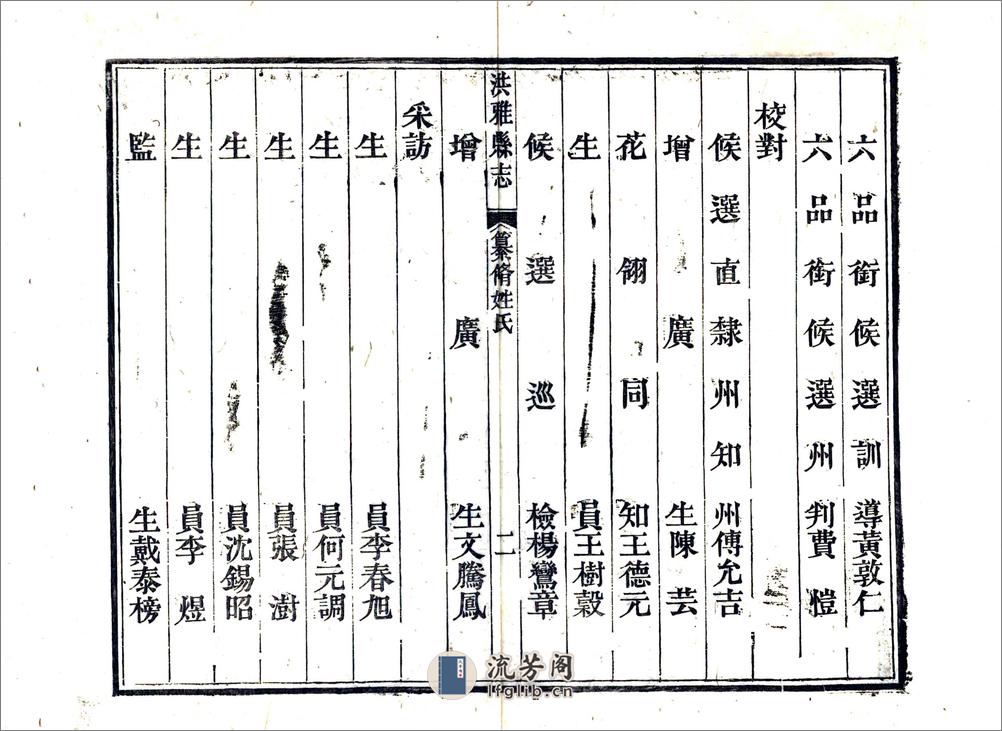 六品銜候選訓導黃敦仁
六品銜候選州判費愷
校對
候選直隸州知州傅允吉
增廣生陳芸
花翎同知王德元
生員王樹縠
候選巡檢楊鸞章
洪雅縣志
纂脩姓氏
二
增廣生文騰鳳
采訪
生員李春旭
生員何元調
生員張澍
生員沈錫昭
生員李煜
監生戴泰榜
流芳阁
lfglib.cn